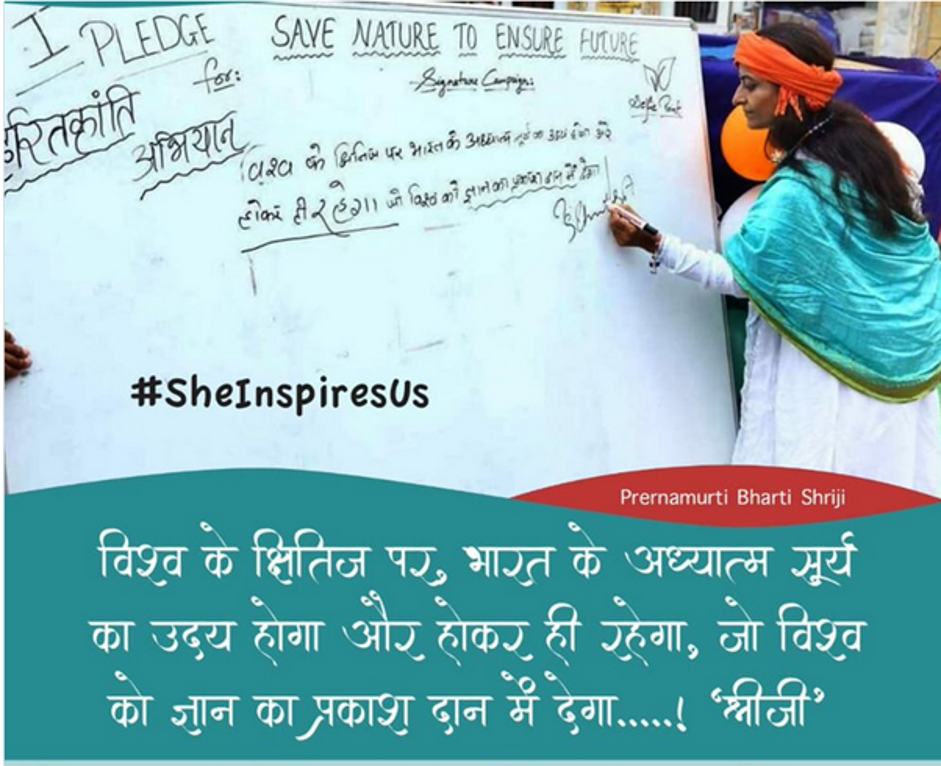 I PLEDGE
for:
हरितक्रांति
अभियान
SAVE NATURE TO ENSURE FUTURE
Signature Campaign:
Selfie Point
विश्व के क्षितिज पर भारत के अध्यात्म सूर्य का उदय होगा और
होकर ही रहेगा। जो विश्व को ज्ञान का प्रकाश दान में देगा
#SheInspiresUs
Prernamurti Bharti Shriji
विश्व के क्षितिज पर, भारत के अध्यात्म सूर्य
का उदय होगा और होकर ही रहेगा, जो विश्व
को ज्ञान का प्रकाश दान में देगा.....! ‘श्रीजी’